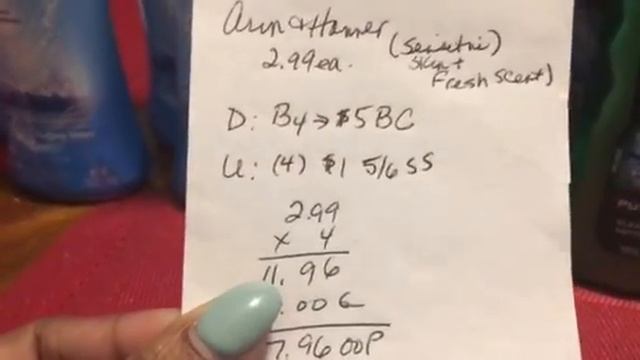 Arm & Hammer (Sensitive
2.99 ea. Skin +
Fresh Scent)
D: B4→$5BC
U: (4) $1 5/6 SS
2.99
x 4
11.96
.00 C
7.96 OOP